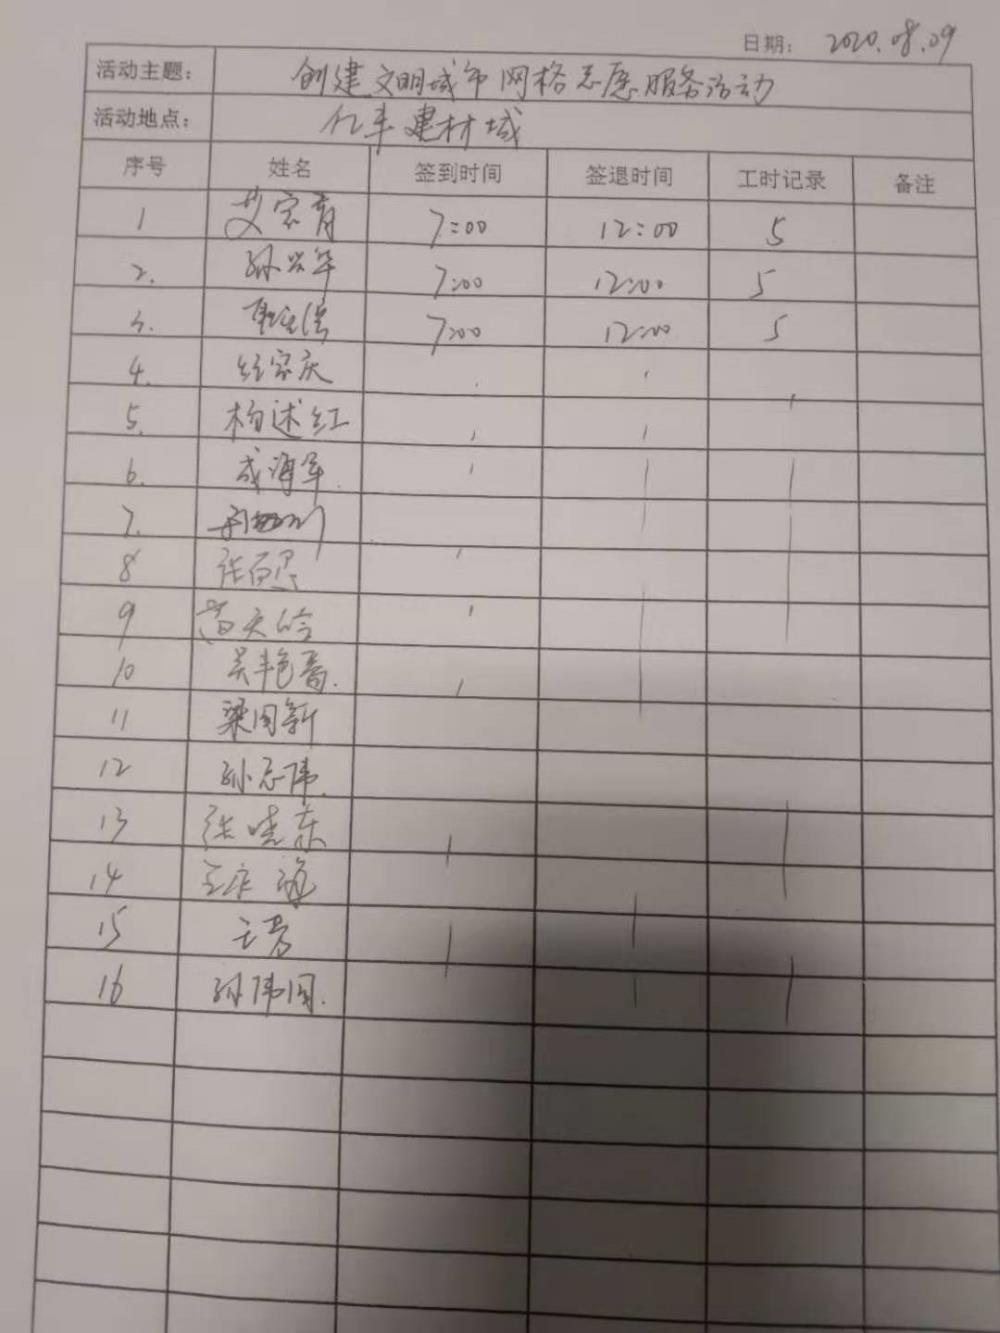 日期： 2020.08.09
活动主题： 创建文明城市网格志愿服务活动
活动地点： 亿丰建材城
序号 姓名 签到时间 签退时间 工时记录 备注
1 艾宗育 7:00 12:00 5
2. 孙兴华 7:00 12:00 5
3. 7:00 12:00 5
4. 经宗庆
5. 柏述红
6. 成海军.
7.
8
9
10 吴艳喜.
11 梁国新
12 孙志伟.
13 张晓东
14
15 王芳
16 孙伟国.